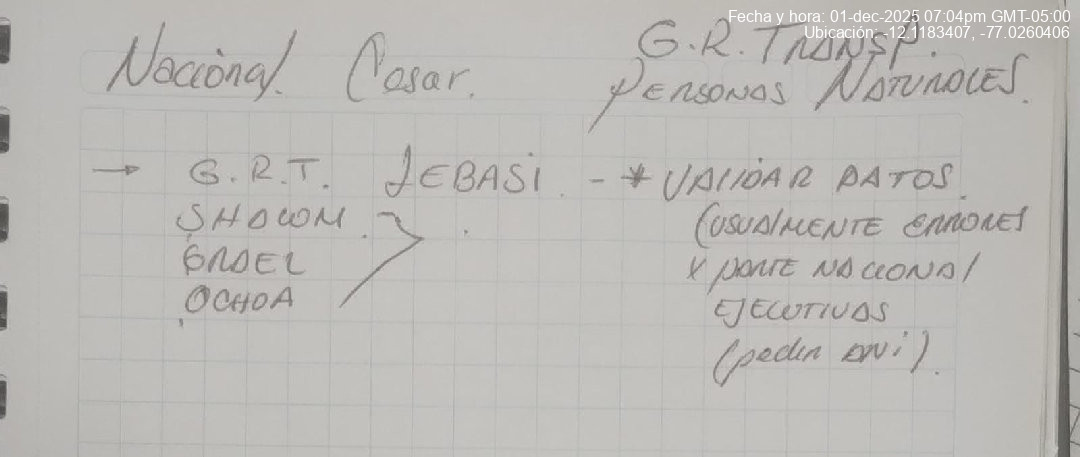 Fecha y hora: 01-dec-2025 07:04pm GMT-05:00
Ubicación: -12.1183407, -77.0260406
Nacional. Casar. G.R. TRANSP.
PERSONAS NATURALES.
→ G.R.T. JEBASI. - * VALIDAR DATOS.
SHDWM. (USUALMENTE ERRORES
GRDEL X PARTE NACIONAL
OCHOA EJECUTIVAS
(pedir DNi).